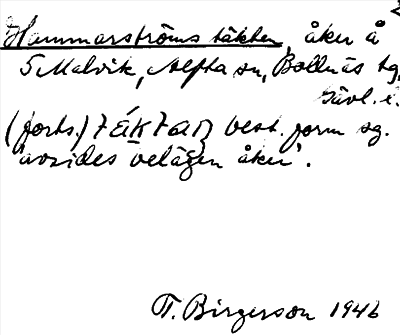 2
Hammarströms täkten, åker å
5 Malvik, Alfta sn, Bollnäs tg,
Gävl. l.
(forts.) tǻktan best. form sg.
'avsides belägen åker'.
T. Birgerson 1946